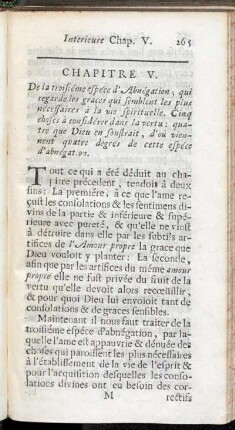 Interieure Chap. V. 265
CHAPITRE V.
De la troisiéme espéce d'Abnégation, qui
regarde les graces qui semblent les plus
nécessaires à la vie spirituelle. Cinq
choses à considérer dans la vertu: quatre
que Dieu en soustrait, d'où viennent
quatre dégrés de cette espéce
d'abnégation.
Tout ce qui a été déduit au chapitre
précedent, tendoit à deux
fins: La première, à ce que l'ame reçût
les consolations & les sentimens divins
de la partie & inférieure & supérieure
avec pureté, & qu'elle ne vinst
à détruire dans elle par les subtils artifices
de l'Amour propre la grace que
Dieu vouloit y planter: La seconde,
afin que par les artifices du même amour
propre elle ne fust privée du fruit de la
vertu qu'elle devoit alors recœüillir,
& pour quoi Dieu lui envoioit tant de
consolations & de graces sensibles.
Maintenant il nous faut traiter de la
troisiéme espéce d'abnégation, par laquelle
l'ame est appauvrie & dénuée des
choses qui paroissent les plus nécessaires
à l'établissement de la vie de l'esprit &
pour l'acquisition desquelles les consolations
divines ont eu besoin des cor-
M rectifs